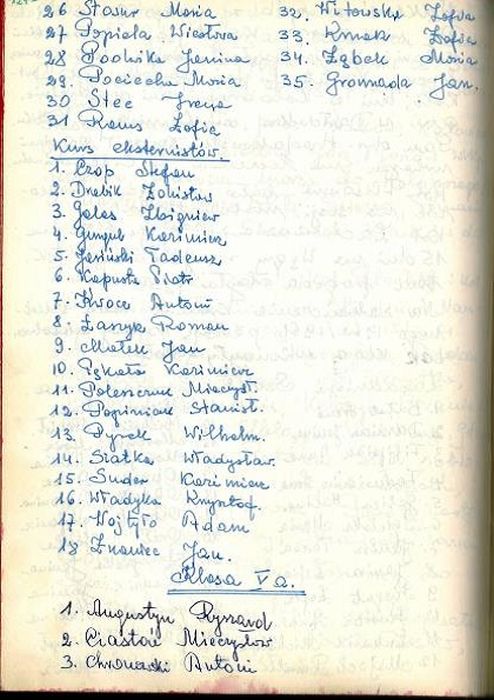 26 Stasur Maria
27 Popiela Wiesława
28 Janina
29. Pociecha Maria
30 Stec Irena
31 Kaus Zofia
32. Witowska Zofia
33. Kmak Zofia
34. Ząbek Maria
35. Gromnada Jan.
Kurs eksternistów.
1. Czop Stefan
2. Drabik Zdzisław
3. Golas Zbigniew
4. Kazimierz
5. Jasiński Tadeusz
6. Kapusta Piotr
7. Kwoca Antoni
8. Roman
9. Małek Jan
10. Pękala Kazimierz
11. Poleszczuk Mieczysł.
12. Popieniak Stanisł.
13. Pyrek Wilhelm.
14. Siatka Władysław.
15. Suder Kazimierz
16. Władyka Krzysztof.
17. Wojtyło Adam
18 Znaniec Jan.
Klasa Va.
1. Augustyn Ryszard
2. Ciastoń Mieczysław
3. Chronacki Antoni